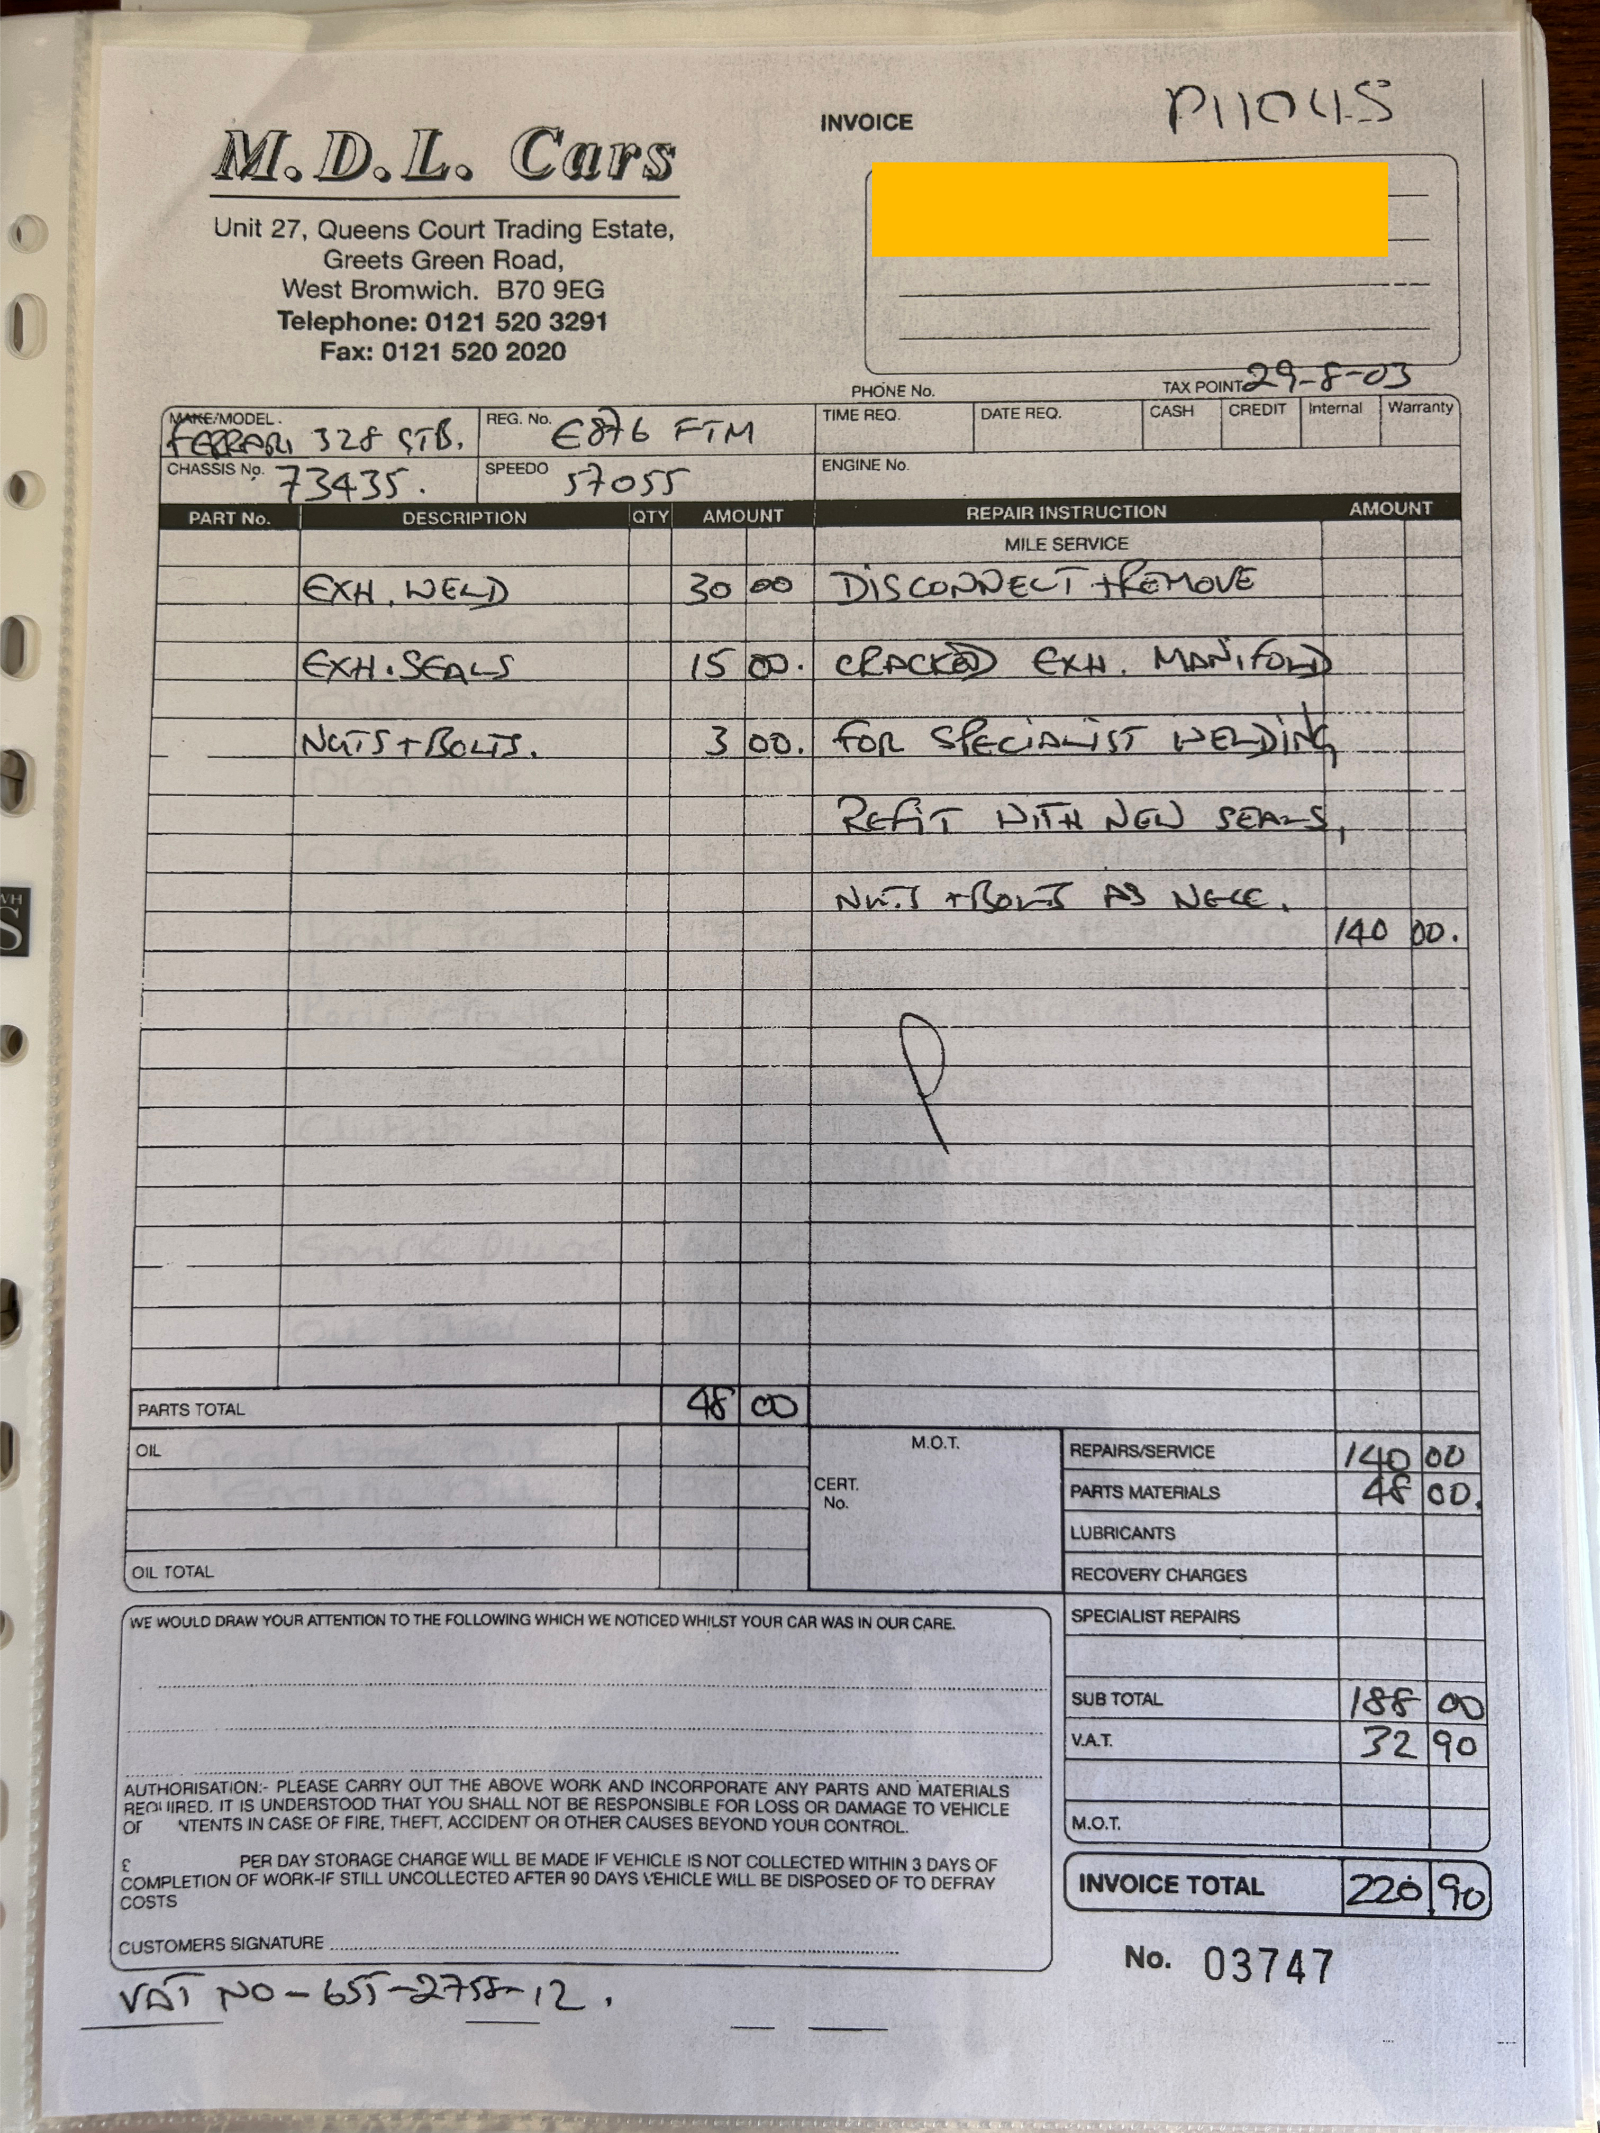 INVOICE
P11045
M.D.L. Cars
Unit 27, Queens Court Trading Estate,
Greets Green Road,
West Bromwich. B70 9EG
Telephone: 0121 520 3291
Fax: 0121 520 2020
PHONE No.
TAX POINT 29-8-03
MAKE/MODEL. FERRARI 328 GTB.
REG. No. E876 FTM
TIME REQ. DATE REQ. CASH CREDIT Internal Warranty
CHASSIS No. 73435.
SPEEDO 57055
ENGINE No.
PART No. DESCRIPTION QTY AMOUNT REPAIR INSTRUCTION AMOUNT
MILE SERVICE
EXH. WELD 30 00 DISCONNECT + REMOVE
EXH. SEALS 15 00. CRACKED EXH. MANIFOLD
NUTS + BOLTS. 3 00. FOR SPECIALIST WELDING,
REFIT WITH NEW SEALS,
NUTS + BOLTS AS NECE.
140 00.
PARTS TOTAL 48 00
OIL
M.O.T.
CERT.
No.
OIL TOTAL
REPAIRS/SERVICE 140 00
PARTS MATERIALS 48 00.
LUBRICANTS
RECOVERY CHARGES
SPECIALIST REPAIRS
SUB TOTAL 188 00
V.A.T. 32 90
M.O.T.
INVOICE TOTAL 220.90
No. 03747
WE WOULD DRAW YOUR ATTENTION TO THE FOLLOWING WHICH WE NOTICED WHILST YOUR CAR WAS IN OUR CARE.
AUTHORISATION:- PLEASE CARRY OUT THE ABOVE WORK AND INCORPORATE ANY PARTS AND MATERIALS
REQUIRED. IT IS UNDERSTOOD THAT YOU SHALL NOT BE RESPONSIBLE FOR LOSS OR DAMAGE TO VEHICLE
OF NTENTS IN CASE OF FIRE, THEFT, ACCIDENT OR OTHER CAUSES BEYOND YOUR CONTROL.
£ PER DAY STORAGE CHARGE WILL BE MADE IF VEHICLE IS NOT COLLECTED WITHIN 3 DAYS OF
COMPLETION OF WORK-IF STILL UNCOLLECTED AFTER 90 DAYS VEHICLE WILL BE DISPOSED OF TO DEFRAY
COSTS
CUSTOMERS SIGNATURE
VAT NO - 655-2758-12.